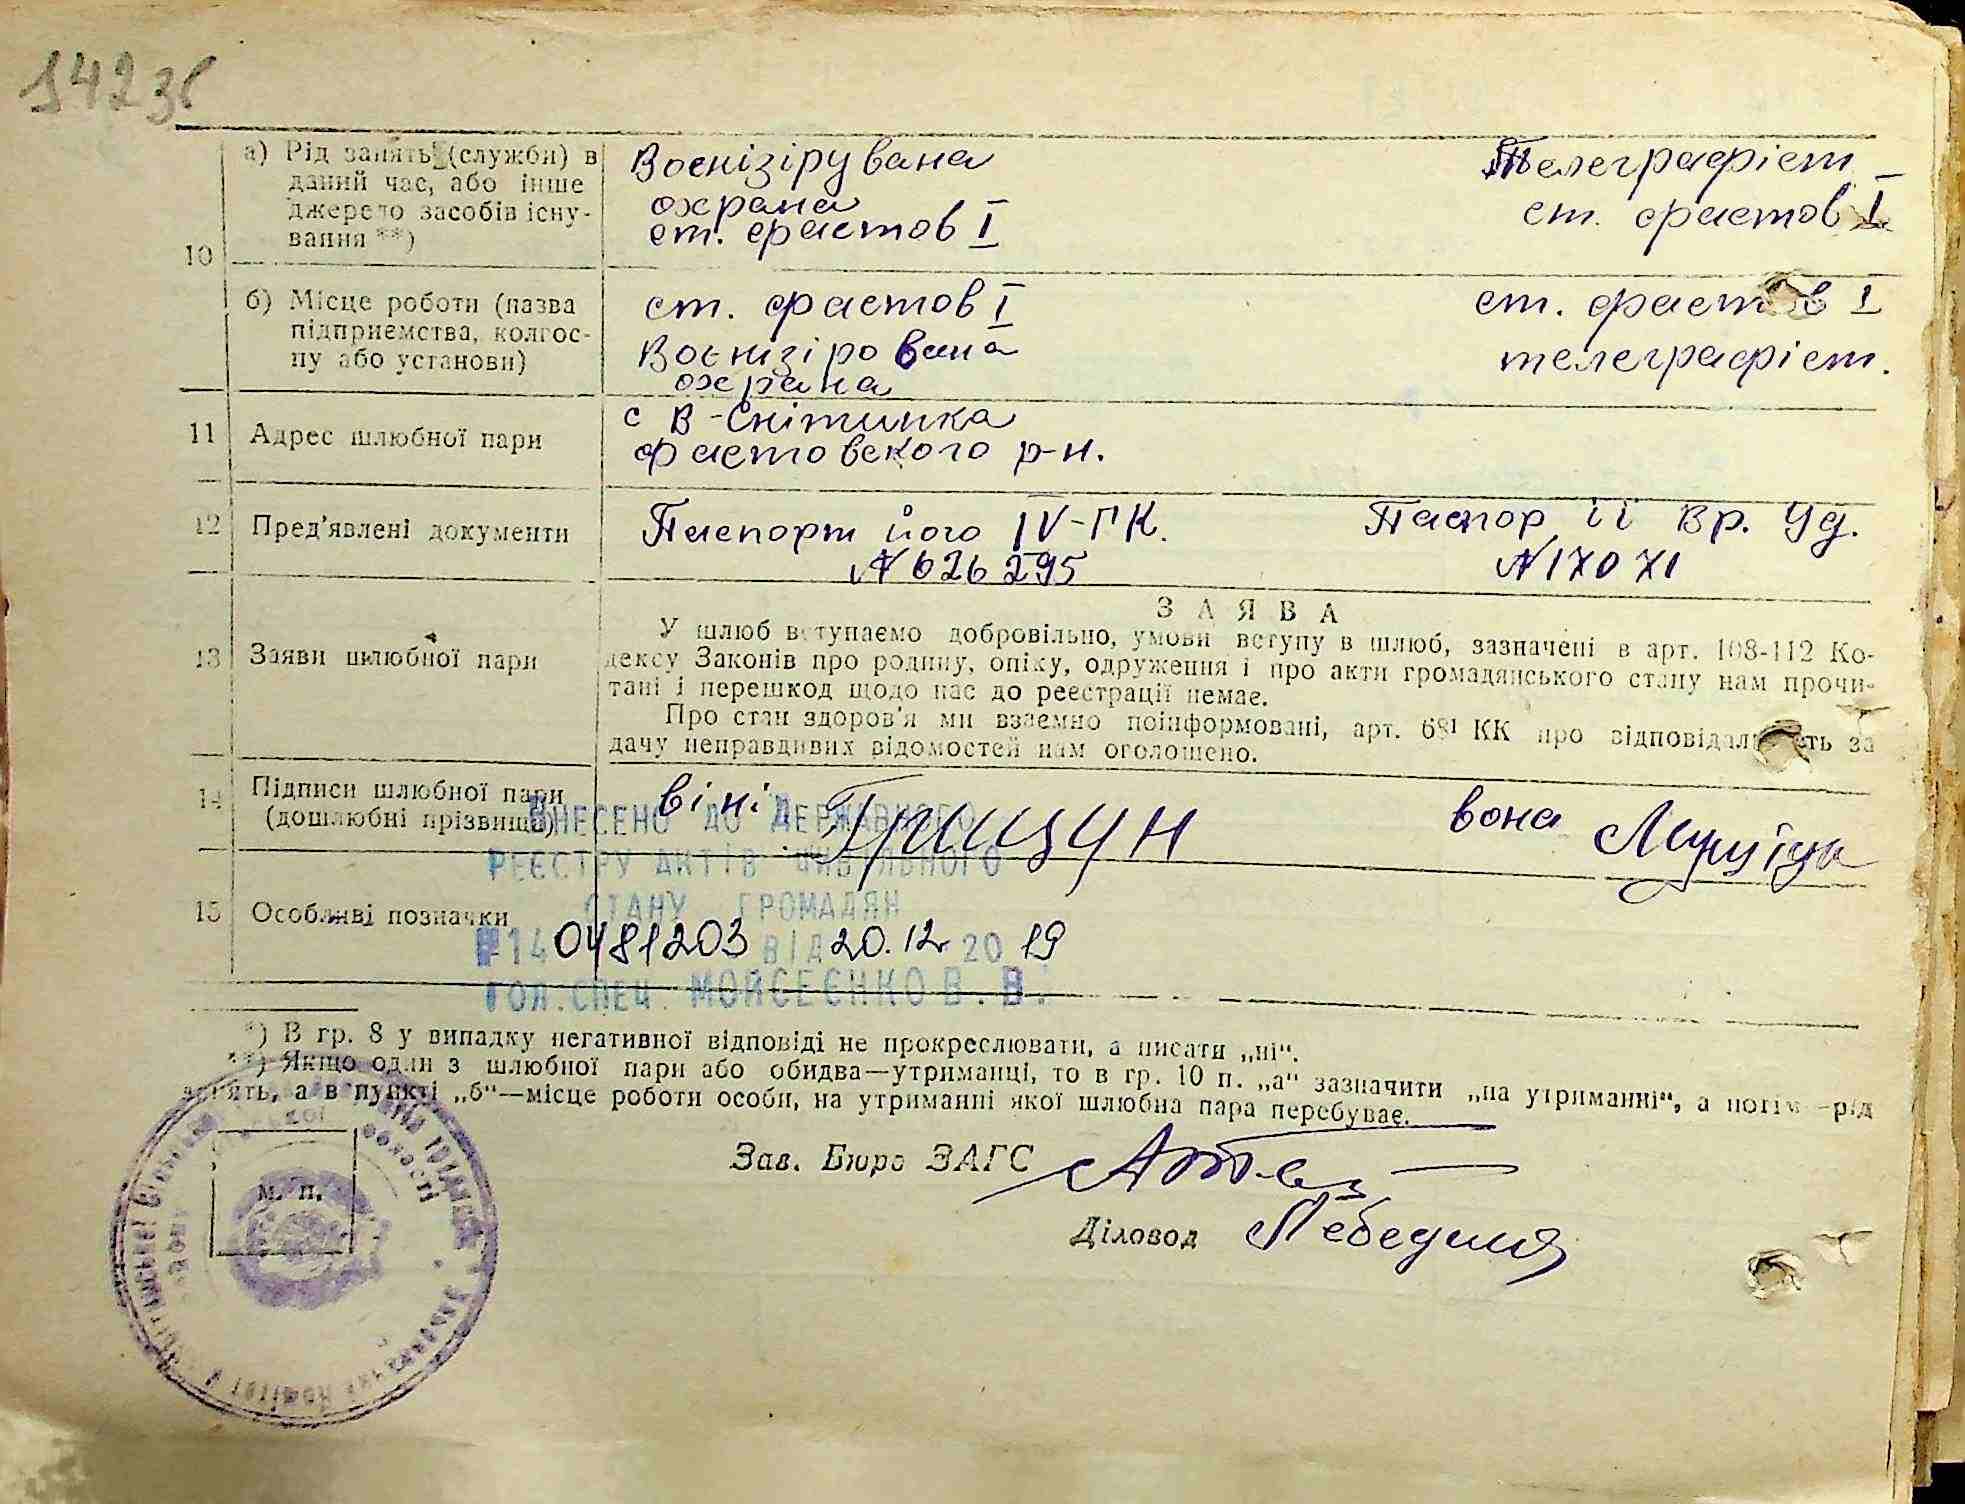 142зв
а) Рід занять (служби) в
даний час, або інше
джерело засобів існу-
вання **)
10
Воєнізірувана
охрана
ст. Фастов I
Телеграфіст
ст. Фастов I
б) Місце роботи (назва
підприємства, колгос-
пу або установи)
ст. Фастов I
Воєнізірована
охрана
ст. Фастов I
телеграфіст.
11 Адрес шлюбної пари
с В-Снітинка
Фастовского р-н.
12 Пред'явлені документи
Паспорт його IV-ГК.
№ 626295
Паспор її Вр. Уд.
№ 17071
13 Заяви шлюбної пари
ЗАЯВА
У шлюб вступаємо добровільно, умови вступу в шлюб, зазначені в арт. 108-112 Ко-
дексу Законів про родину, опіку, одруження і про акти громадянського стану нам прочи-
тані і перешкод щодо нас до реєстрації немає.
Про стан здоров'я ми взаємно поінформовані, арт. 68¹ КК про відповідальність за
дачу неправдивих відомостей нам оголошено.
14 Підписи шлюбної пари
(дошлюбні прізвища)
він: Грицун
вона
ВНЕСЕНО ДО ДЕРЖАВНОГО
РЕЄСТРУ АКТІВ ЦИВІЛЬНОГО
СТАНУ ГРОМАДЯН
15 Особливі позначки
№14 0481203 ВІД 20.12. 2019
ГОЛ.СПЕЦ. МОЙСЕЄНКО В.В.
*) В гр. 8 у випадку негативної відповіді не прокреслювати, а писати „ні“.
**) Якщо один з шлюбної пари або обидва—утриманці, то в гр. 10 п. „а“ зазначити „на утриманні“, а потім—рід
занять, а в пункті „б“—місце роботи особи, на утриманні якої шлюбна пара перебуває.
Зав. Бюро ЗАГС
Діловод
м. п.
області